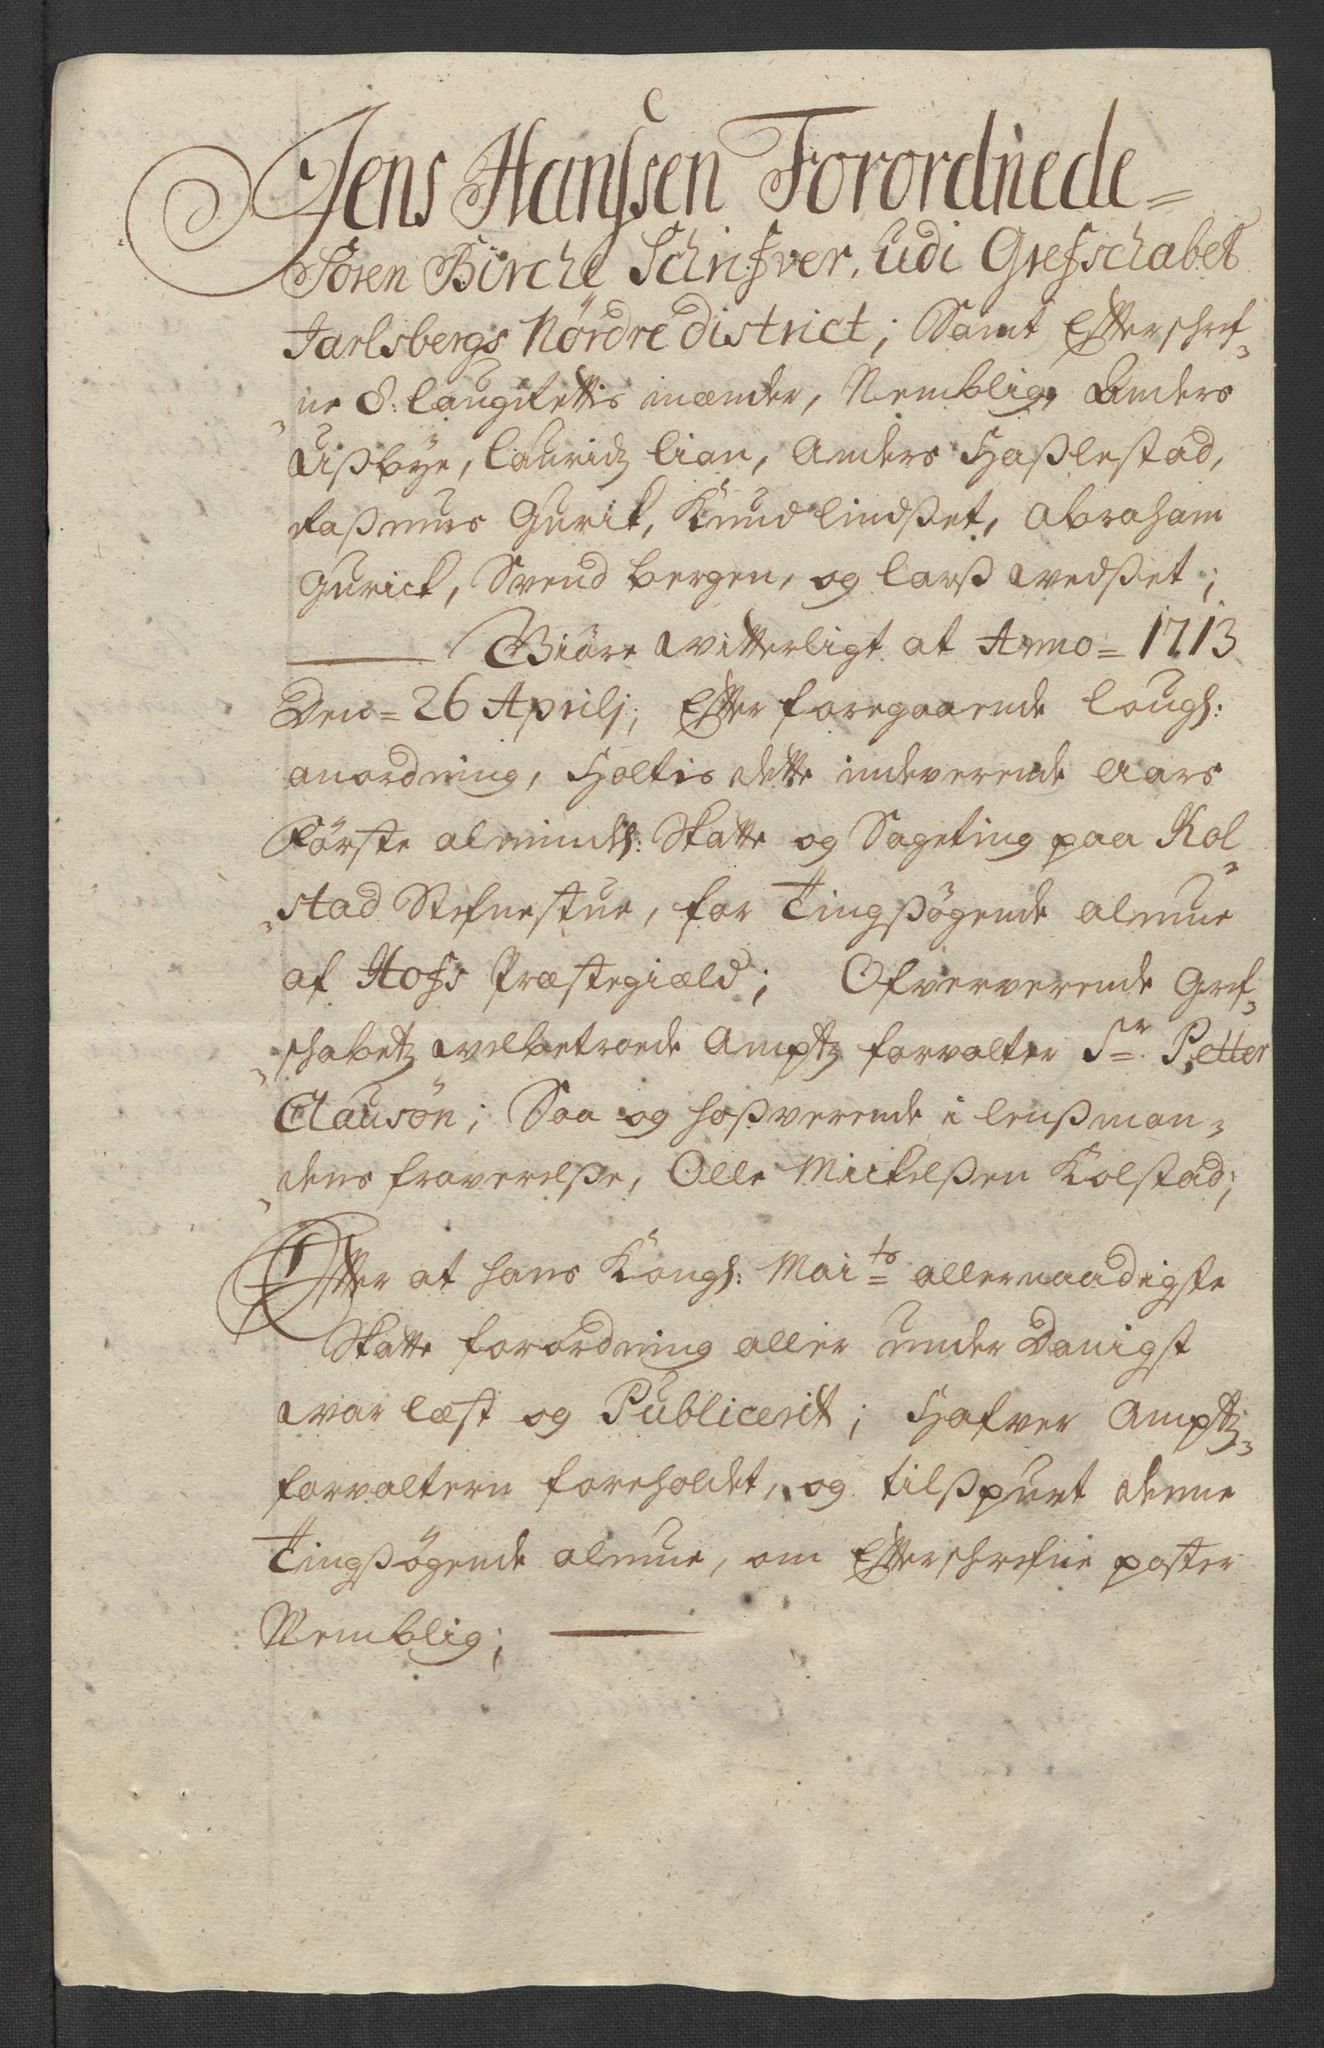 Jens Hanssen Forordnede=
Soren Birche Schrifver, Udi Grefschabet
Jarlsbergs Nördre district; Samt Efterschref¬
ne 8. laugrettis mænder, Nemblig, Anders
Ußbye, Lauridz Lian, Anders Haßlestad,
Raßmus Gurik, Knud lindßet, Abraham
Gurick, Svend bergen, og larß wedßet;
Giöre witterligt at Anno= 1713
Den= 26 Aprilj; Efter foregaaende lougl:
anordning, Holtis dette indeverende Aars
Förste almindl: Skatte og Sageting paa Kol¬
stad Stefnestue, for Tingßögende almue
af Hofs Præstegiæld; Ofververende Gref¬
schabetz welbetroede Amptz forvalter Sr. Petter
Clausøn; Saa og hoßverende i lenßman¬
dens fraverelße, Olle Mickelßen Kolstad;
Efter at hans Kongl: Maits allernaadigste
Skatte forordning aller under Danigst
war læst og Publicerit; Hafver Amptz¬
forvalteren foreholdet, og tilßpurt denne
Tingßögende almue, om Efterschrefne poster
Nemblig;